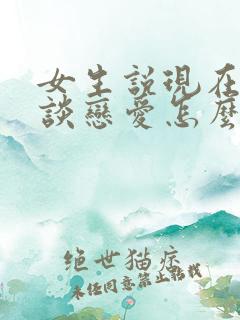 女生說現在
談戀愛怎麼
绝世猫痞
未经同意禁止转载